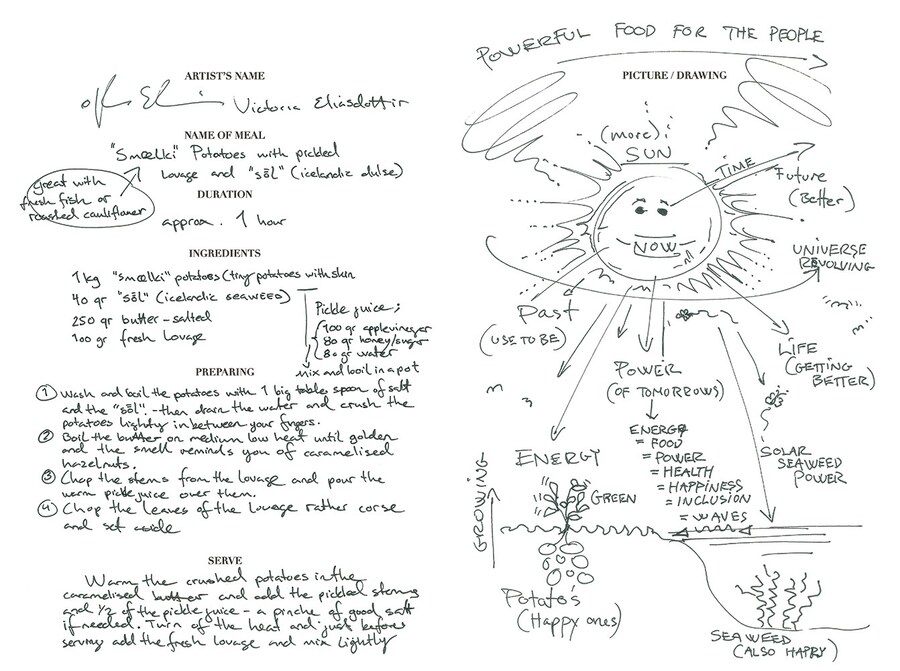 ARTIST'S NAME
Victoria Elíasdóttir
NAME OF MEAL
"Smælki" Potatoes with pickled
lovage and "söl" (icelandic dulse)
great with
fresh fish or
roasted cauliflower
DURATION
approx. 1 hour
INGREDIENTS
1 kg "smælki" potatoes (tiny potatoes with skin
40 gr "söl" (icelandic seaweed)
250 gr butter - salted
100 gr fresh lovage
Pickle juice:
100 gr applevinegar
80 gr honey/sugar
80 gr water
mix and boil in a pot
PREPARING
① Wash and boil the potatoes with 1 big table spoon of salt
and the "söl". - then drain the water and crush the
potatoes lightly in between your fingers.
② Boil the butter on medium low heat until golden
and the smell reminds you of caramelised
hazelnuts.
③ Chop the stems from the lovage and pour the
warm pickle juice over them.
④ Chop the leaves of the lovage rather corse
and set aside
SERVE
Warm the crushed potatoes in the
caramelised butter and add the pickled stems
and 1/2 of the pickle juice - a pinche of good salt
if needed. Turn of the heat and just before
serving add the fresh lovage and mix lightly
POWERFUL FOOD FOR THE PEOPLE
PICTURE / DRAWING
(more):
SUN
TIME
Future
(Better)
NOW
UNIVERSE
REVOLVING
Past
(USE TO BE)
LIFE
(GETTING
BETTER)
POWER
(OF TOMORROWS)
ENERGY
= FOOD
= POWER
= HEALTH
= HAPPINESS
= INCLUSION
= WAVES
SOLAR
SEAWEED
POWER
ENERGY
GREEN
GROWING
Potato's
(Happy ones)
SEAWEED
(ALSO HAPPY)